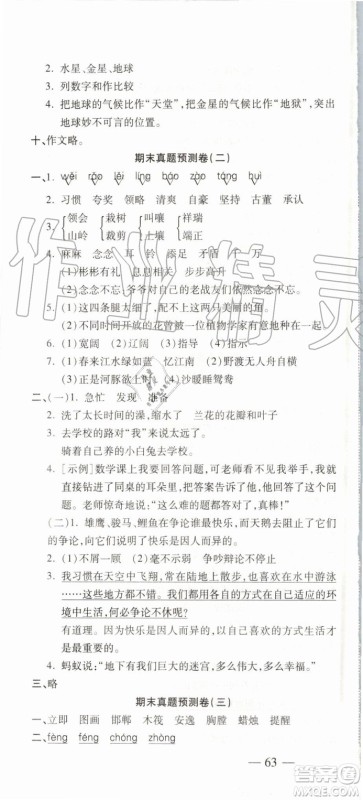 2. 水星、金星、地球
3. 列数字和作比较
4. 把地球的气候比作“天堂”,把金星的气候比作“地狱”,突出
地球妙不可言的变化。
十、作文略。
期末真题预测卷(二)
一、1.
2. 习惯 夸奖 领略 清爽 自豪 坚硬 资源
3. 领会 裁树 叫嚷 祥瑞
山岭 栽树 土壤 详细
4. 麻麻 念念 耳 踪 添足 矛盾
(1)彬彬有礼 息息相关 步步高升
(2)念念不忘 爷爷对自己的老战友们念念不忘。
5. (1)这四条腿太细了,配不上这两只美丽的角。
(2)不同的花曾被一位植物学家有意地种在一起。
6. (1)宽阔 (2)辽阔 (3)开阔
7. (1)春来江水绿如蓝 忆江南 (2)野渡无人舟自横
(3)正是河豚欲上时 (4)沙暖睡鸳鸯
二、(一)1. 急忙 发现 准备
2. 洗了太长时间的澡,缩水了 兰花的花瓣和叶子
3. 去学校的路对“我”来说太远了。
骑着自己的小白兔去学校。
4. [示例]数学课上我遇到了难题,可老师看不见我,我就
直接钻进了同桌的耳朵里,把答案告诉了他,他很快答出
来了。老师惊奇地说:“这么难的题都答对了。”
(二)1. 雄鹰、骏马、鲤鱼在争论谁最快乐,而天鹅去阻止了它
们的争论,并认为快乐是因人而异的。
2. (1)不屑一顾 (2)争吵辩论不停止
3. 我习惯在天空中飞翔,常在陆地上散步,也喜欢在水中游泳
……这些地方都不错。我们大家都在自己适应的环
境中生活,何必争论不休呢?
有道理。因为快乐是因人而异的,以自己喜欢的方式生活
就是快乐的。
4. 蚂蚁说:“地下有我们巨大的迷宫,多么伟大,多么幸福。”
三、略
期末真题预测卷(三)
一、立即 图画 邯郸 木筏 安逸 胸膛 蜡烛 提醒
二、fèng féng chóng zhòng
— 63 —
作业精灵